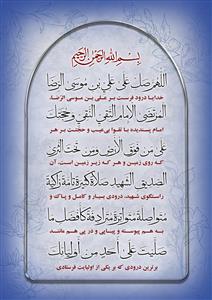 بسم الله الرحمن الرحیم
اللهم صل علی علی بن موسی الرضا
خدایا درود فرست بر علی بن موسی الرضا
المرتضی الامام التقی النقی و حجتک
امام پسندیده با تقوا بی‌عیب و حجتت بر هر
علی من فوق الارض و من تحت الثری
که روی زمین و هر که زیر زمین است، آن
الصدیق الشهید صلاة کثیرة تامة زاکیة
راستگوی شهید، درودی بسیار و کامل و پاک و
متواصلة متواترة مترادفة کافضل ما
به هم پیوسته و پیاپی و در پی هم مانند
صلیت علی احد من اولیائک
برترین درودی که بر یکی از اولیایت فرستادی